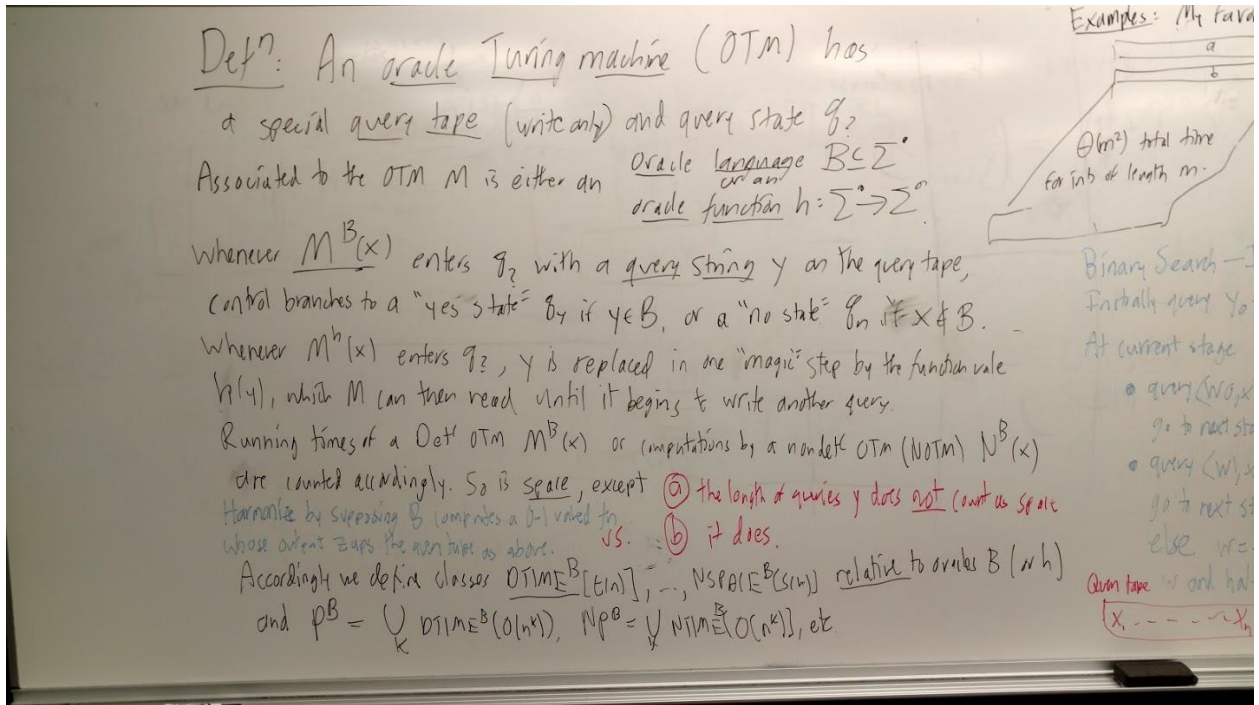 Defⁿ: An oracle Turing machine (OTM) has
a special query tape (write only) and query state q?
Associated to the OTM M is either an oracle language B ⊆ Σ*
or an
oracle function h: Σ* → Σ*.
Whenever M^B(x) enters q? with a query string y on the query tape,
control branches to a "yes state" q_y if y ∈ B, or a "no state" q_n if x ∉ B.
Whenever M^h(x) enters q?, y is replaced in one "magic" step by the function vale
h(y), which M can then read until it begins to write another query.
Running times of a Det'l OTM M^B(x) or computations by a nondetl OTM (NOTM) N^B(x)
are counted accordingly. So is space, except (a) the length of queries y does not count as space
Harmonize by supposing B computes a 0-1 valued fn
whose output zaps the query tape as above. vs. (b) it does.
Accordingly we define classes DTIME^B[t(n)], ..., NSPACE^B[s(n)] relative to oracles B (or h)
and P^B = ∪_k DTIME^B(O(n^k)), NP^B = ∪_k NTIME^B[O(n^k)], etc.
Examples: My
a
b
Θ(m²) total time
for ints of length m.
Binary Search —
Initially query y₀
At current stage
• query ⟨w0, x
go to next
• query ⟨w1, x
go to next
else w =
w and
Query tape
x₁ - - - - - x_n